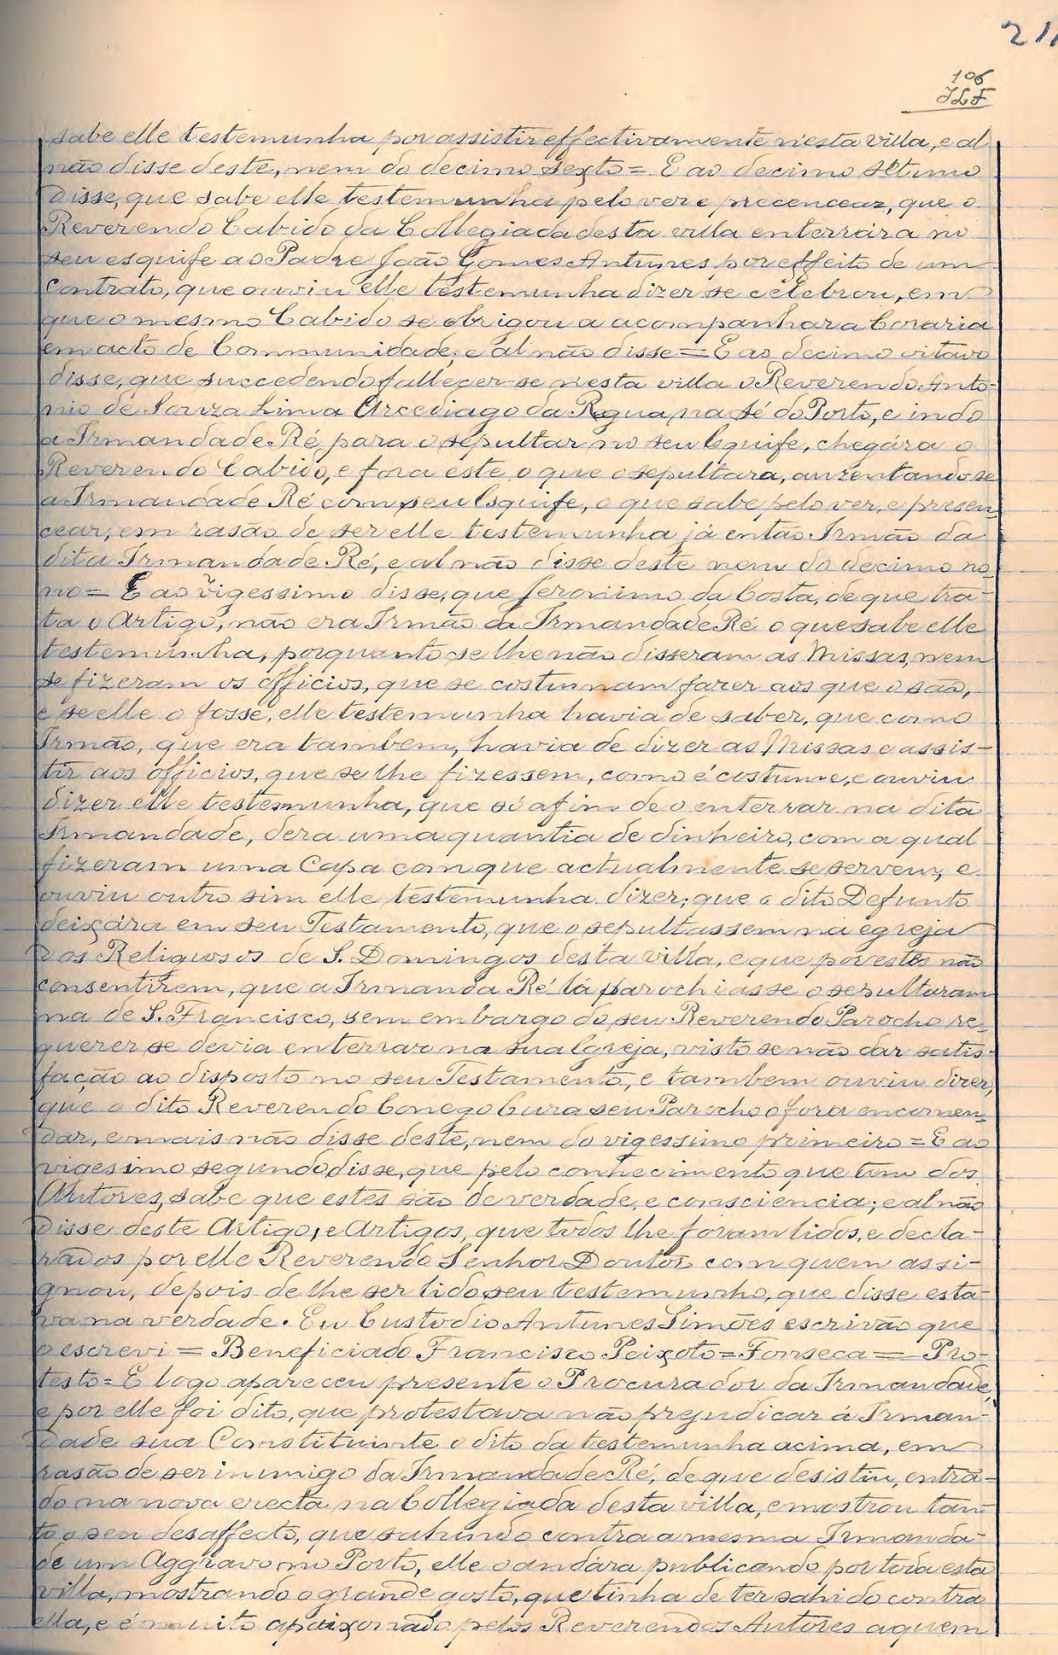 211
106
JLF
sabe elle testemunha por assistir effectivamente n'esta villa, e al
não disse deste, nem do decimo sexto = E ao decimo setimo
disse, que sabe elle testemunha pelo ver e precencear, que o
Reverendo Cabido da Collegiada desta villa enterrára no
seu esquife ao Padre João Gomes Antunes, por effeito de um
Contrato, que ouviu elle testemunha dizer se celebrou, em
que o mesmo Cabido se obrigou a acompanhar a Coraria
em acto de Communidade, e al não disse = E ao decimo oitavo
disse, que succedendo fallecer-se n'esta villa o Reverendo Anto-
nio de Souza Lima Arcediago da Regua, na Sé do Porto, e indo
a Irmandade Ré para o sepultar no seu Esquife, chegára o
Reverendo Cabido, e fora este o que o sepultara, auzentando-se
a Irmandade Ré com seu Esquife, o que sabe pelo ver, e presen-
cear, em rasão de ser elle testemunha já então Irmão da
dita Irmandade Ré, e al não disse deste nem do decimo no-
no = E ao vigessimo disse, que Jeronimo da Costa, de que tra-
ta o Artigo, não era Irmão da Irmandade Ré o que sabe elle
testemunha, porquanto se lhe não disseram as Missas, nem
se fizeram os officios, que se costumam fazer aos que o são,
e se elle o fosse, elle testemunha havia de saber, que como
Irmão, que era tambem, havia de dizer as Missas e assis-
tir aos officios, que se lhe fizessem, como é costume, e ouviu
dizer elle testemunha, que só afim de o enterrar na dita
Irmandade, dera uma quantia de dinheiro, com a qual
fizeram uma Capa com que actualmente se servem, e
ouviu outro sim elle testemunha dizer, que o dito Defunto
deixára em seu Testamento, que o sepultassem na egreja
dos Religiosos de S. Domingos desta villa, e que por estes não
consentirem, que a Irmanda Ré lá parochiasse o sepultaram
na de S. Francisco, sem embargo do seu Reverendo Parocho re-
querer se devia enterrar na sua Igreja, visto se não dar satis-
fação ao disposto no seu Testamento, e tambem ouviu dizer,
que o dito Reverendo Conego Cura seu Parocho o fora encomen-
dar, e mais não disse deste, nem do vigessimo primeiro = E ao
vigesimo segundo disse, que pelo conhecimento que tem dos
Autores, sabe que estes são de verdade, e consciencia; e al não
disse deste Artigo, e Artigos, que todos lhe foram lidos, e decla-
rados por elle Reverendo Senhor Doutor com quem assi-
gnou, depois de lhe ser lido seu testemunho, que disse esta-
va na verdade. Eu Custodio Antunes Simões escrivão que
o escrevi = Beneficiado Francisco Peixoto = Fonseca = Pro-
testo = E logo apareceu presente o Procurador da Irmandade,
e por elle foi dito, que protestava não prejudicar á Irman-
dade sua Constituinte o dito da testemunha acima, em
rasão de ser inimigo da Irmandade Ré, de que desistiu, entra-
do na nova erecta na Collegiada desta villa, e mostrou tan-
to o seu desaffecto, que sahindo contra a mesma Irmanda-
de um Aggravo no Porto, elle o andára publicando por toda esta
villa, mostrando o grande gosto, que tinha de ter sahido contra
ella, e é muito apaixonado pelos Reverendos Autores a quem